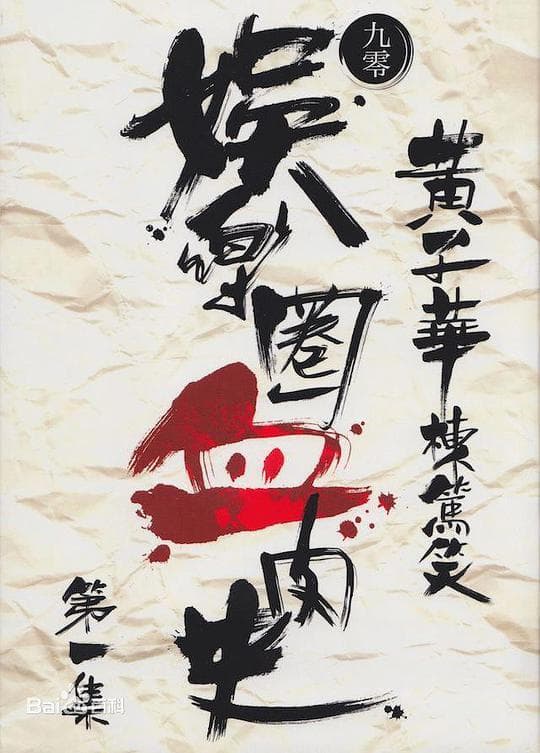 黃子華 棟篤笑
九零
娛樂圈血肉史
第一集
Bai百科